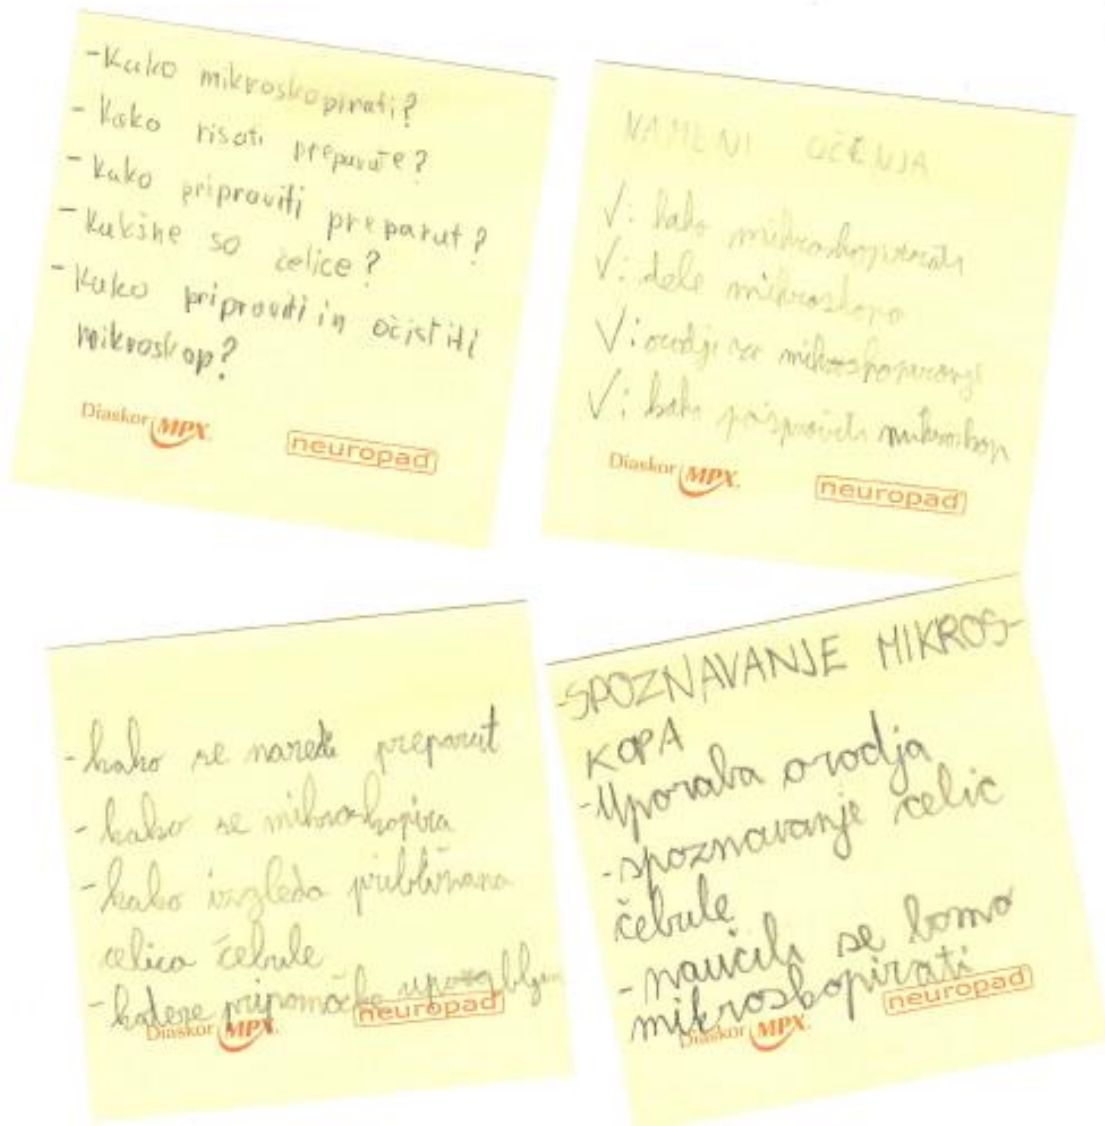 -Kako mikroskopirati?
- Kako risati preparate?
- Kako pripraviti preparat?
- Kakšne so celice?
- Kako pripraviti in očistiti
mikroskop?
Diaskor MPX.
neuropad
NAMENI UČENJA
√: kako mikroskopirati
√: dele mikroskopa
√: orodje za mikroskopiranje
√: kako pripraviti mikroskop
Diaskor MPX.
neuropad
- kako se naredi preparat
- kako se mikroskopira
- kako izgleda približana
celica čebule
- katere pripomočke uporabljam
Diaskor MPX.
neuropad
-SPOZNAVANJE MIKROS-
KOPA
-Uporaba orodja
-spoznavanje celic
čebule
- naučili se bomo
mikroskopirati
neuropad
Diaskor MPX.